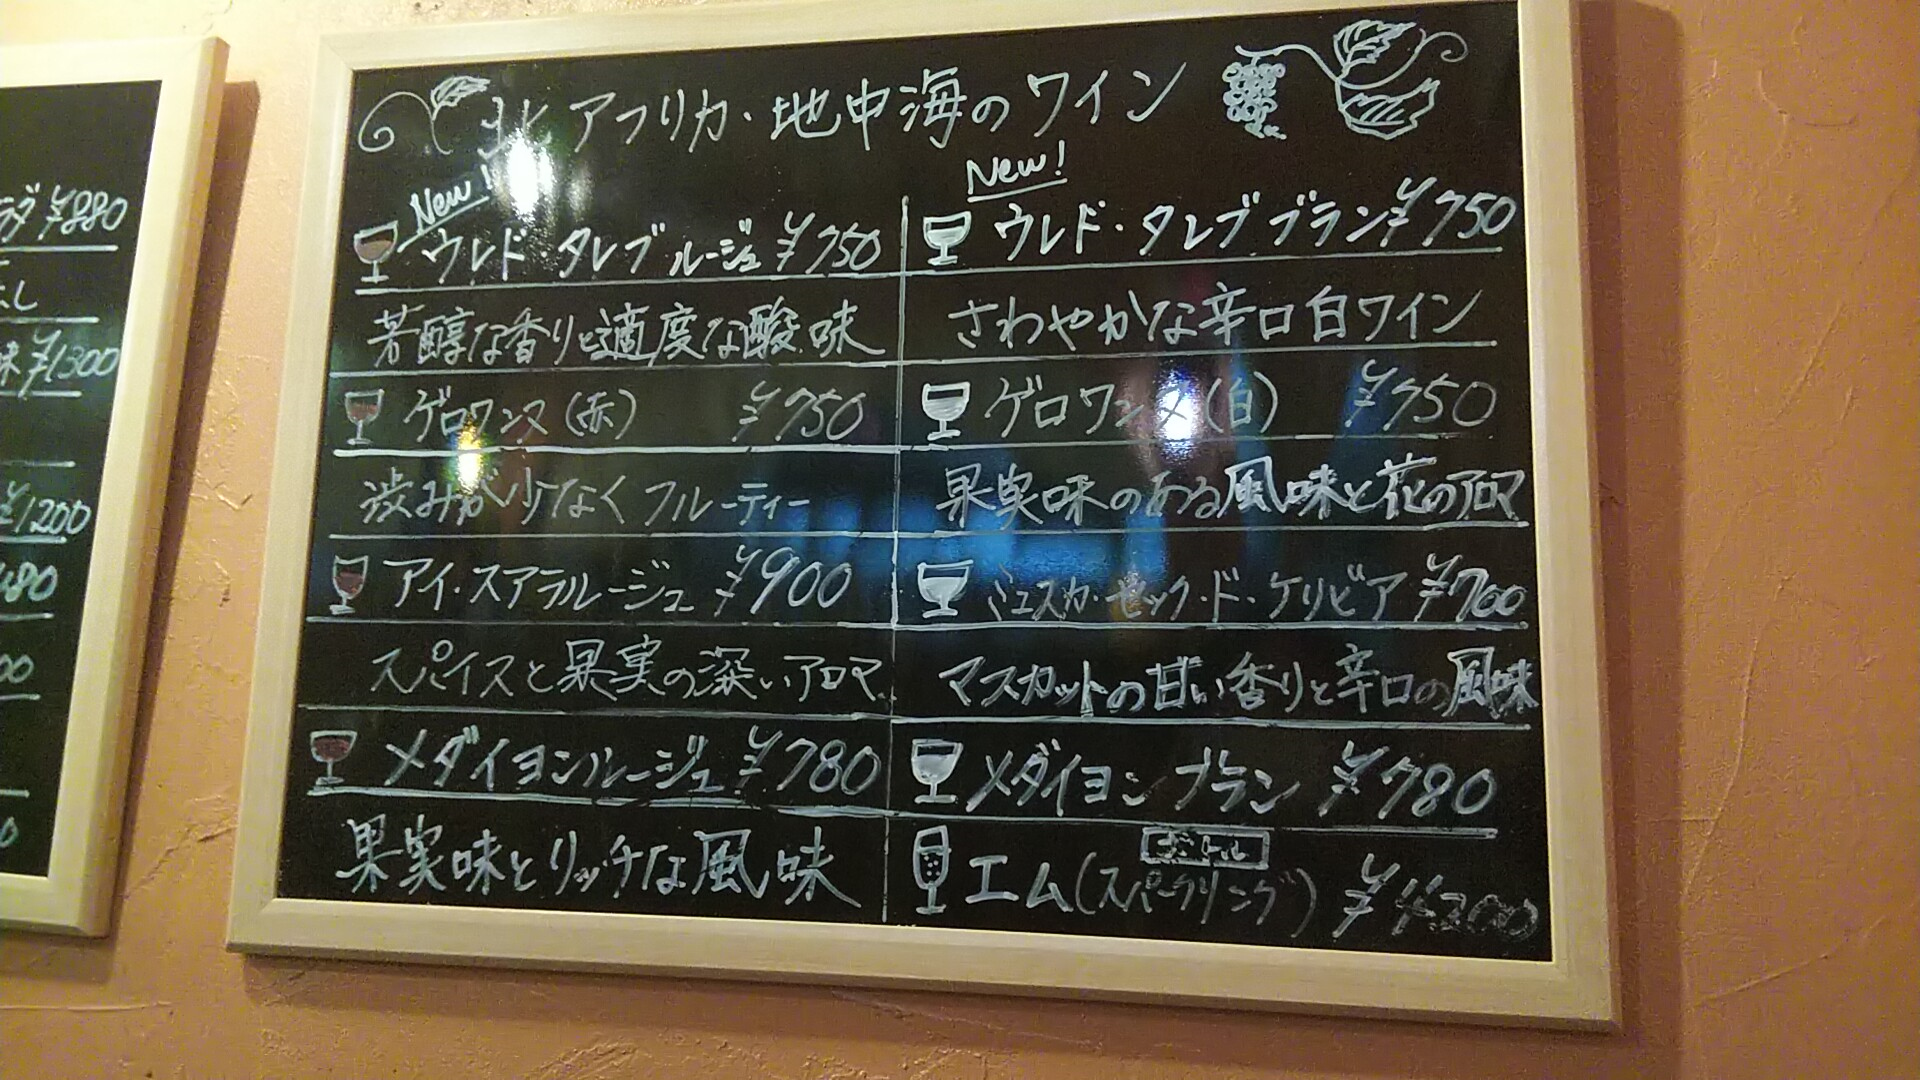 北アフリカ・地中海のワイン
New!
ウレド タレブ ルージュ ¥750
芳醇な香りと適度な酸味
ゲロワンヌ(赤) ¥750
渋みが少なくフルーティー
アイ・スアラルージュ ¥900
スパイスと果実の深いアロマ
メダイヨンルージュ ¥780
果実味とリッチな風味
New!
ウレド・タレブ ブラン ¥750
さわやかな辛口白ワイン
ゲロワンヌ(白) ¥750
果実味のある風味と花のアロマ
ミュスカ・セック・ド・ケリビア ¥700
マスカットの甘い香りと辛口の風味
メダイヨン ブラン ¥780
ボトル
エム(スパークリング) ¥4200
ラダ ¥880
味 ¥1300
¥1200